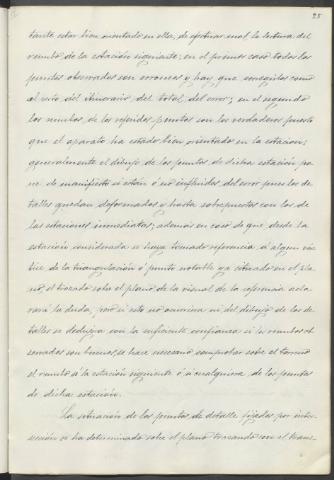 25
tante estar bien orientado en ella, de efectuar mal la lectura del
rumbo de la estación siguiente: en el primer caso todos los
puntos observados son erroneos y hay que corregirlos como
el resto del itinerario, del total, del error; en el segundo
los rumbos, de los referidos puntos son los verdaderos puesto
que el aparato ha estado bien orientado en la estacion;
generalmente el dibujo de los puntos de dicha estación po
ne de manifiesto si están ó nó influidos del error pues los de
talles quedan deformados y hasta sobrepuestos con los de
las estaciones inmediatas; además en caso de que desde la
estación considerada se haya tomado referencia á algun vér
tice de la triangulación ó punto notable ya situado en el pla
no, el trazado sobre el plano de la visual de la referencia acla
rará la duda, pero si esto no ocurriera ni del dibujo de los de
talles se dedujera con la suficiente confianza si los rumbos ob
servados son buenos, se hace necesario comprobar sobre el terreno
el rumbo á la estación siguiente ó á cualquiera de los puntos
de dicha estación.
La situación de los puntos de detalle fijados por inter-
sección se ha determinado sobre el plano trazando con el trans-